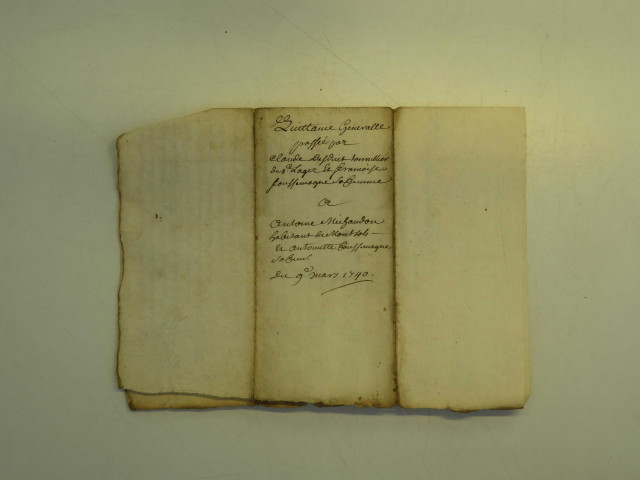 Quittance Generalle
passée par
Claude Desduit tonnellier
de St Lager & francoise
foussemagne sa femme
A
Antoine Michaudon
habitant de Montsols
& antoinette foussemagne
sa fem.
Du 9e mars 1740.